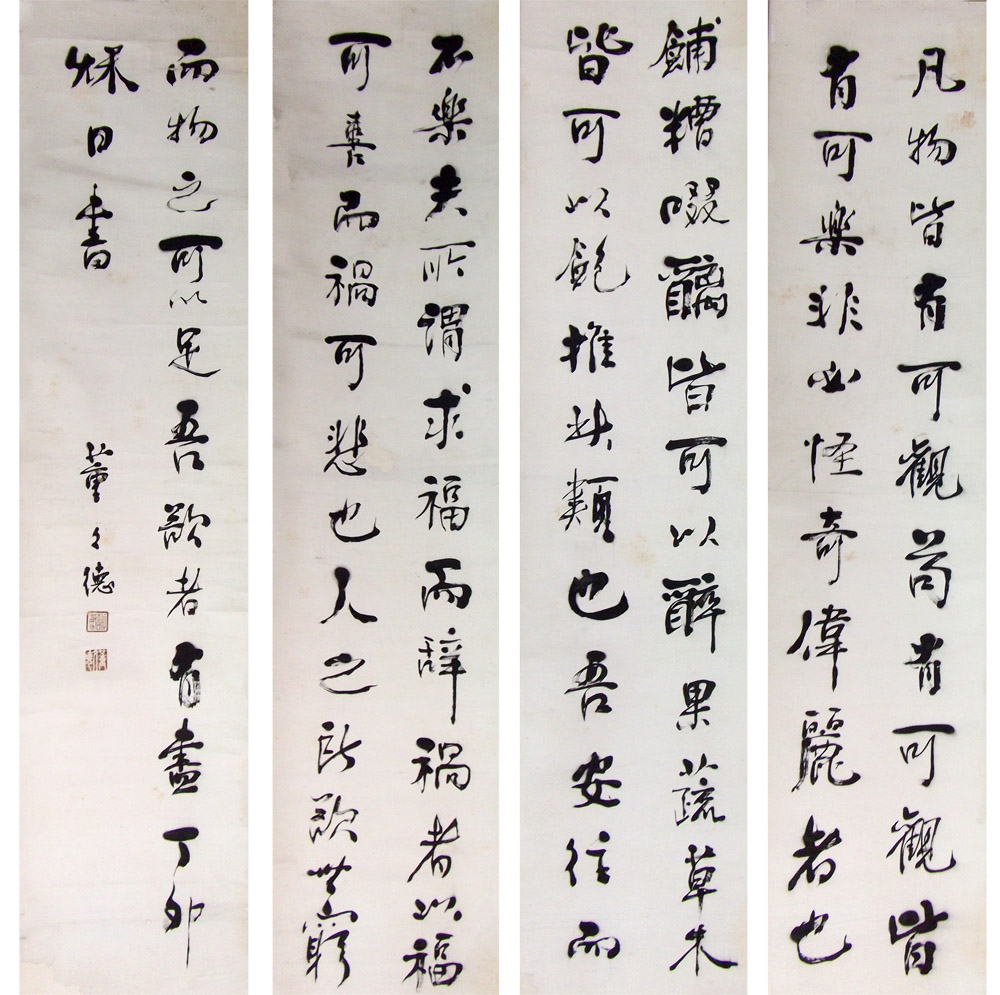 凡物皆有可觀苟有可觀皆
有可樂非必怪奇偉麗者也
餔糟啜醨皆可以醉果蔬草木
皆可以飽推此類也吾安往而
不樂夫所謂求福而辞禍者以福
可喜而禍可悲也人之所欲無窮
而物之可以足吾欲者有盡丁卯
秌日書
董德